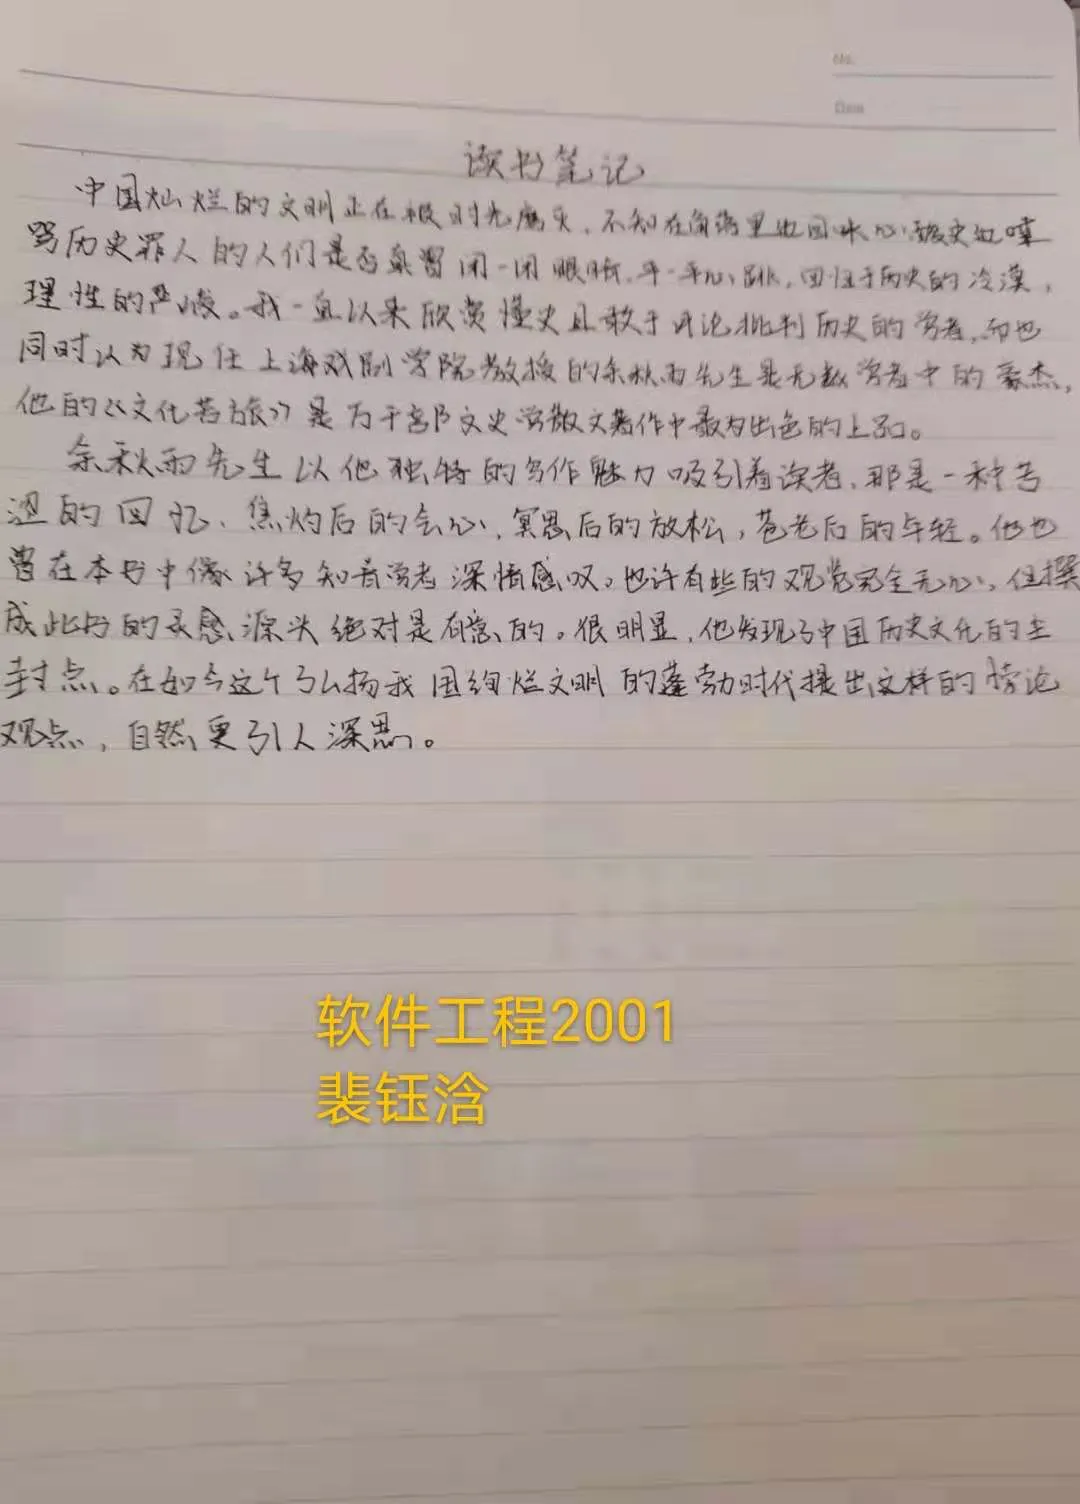 No.
Date
读书笔记
中国灿烂的文明正在被时光磨灭,不知在角落里也回味心酸史也嘆
骂历史罪人的人们是否真曾闭一闭眼睛,平一平心跳,回归于历史的冷漠,
理性的严峻。我一直以来欣赏懂史且敢于评论批判历史的学者,而也
同时认为现任上海戏剧学院教授的余秋雨先生是无数学者中的豪杰,
他的《文化苦旅》是万千部文史学散文著作中最为出色的上品。
余秋雨先生以他独特的写作魅力吸引着读者,那是一种苦
涩的回忆、焦灼后的会心,冥思后的放松,苍老后的年轻。他也
曾在本书中像许多知音读者深情感叹。也许有些的观览完全无心,但撰
成此书的灵感源头绝对是有意的。很明显,他发现了中国历史文化的尘
封点。在如今这个弘扬我国绚烂文明的蓬勃时代提出这样的悖论
观点,自然更引人深思。
软件工程2001
裴钰浛